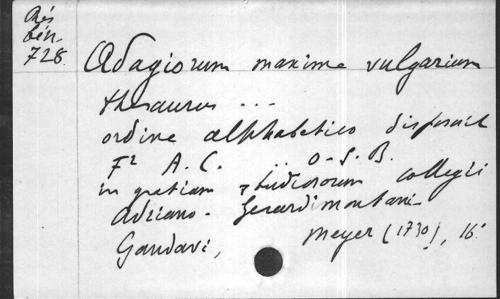 Rés
bén
728
Adagiorum maxime vulgarium
thesaurus ...
ordine alphabetico disposuit
Fr A. C. ... O. S. B.
in gratiam studiosorum collegii
Adriano-Gerardimontani
Gandavi, Meyer (1730), 16°